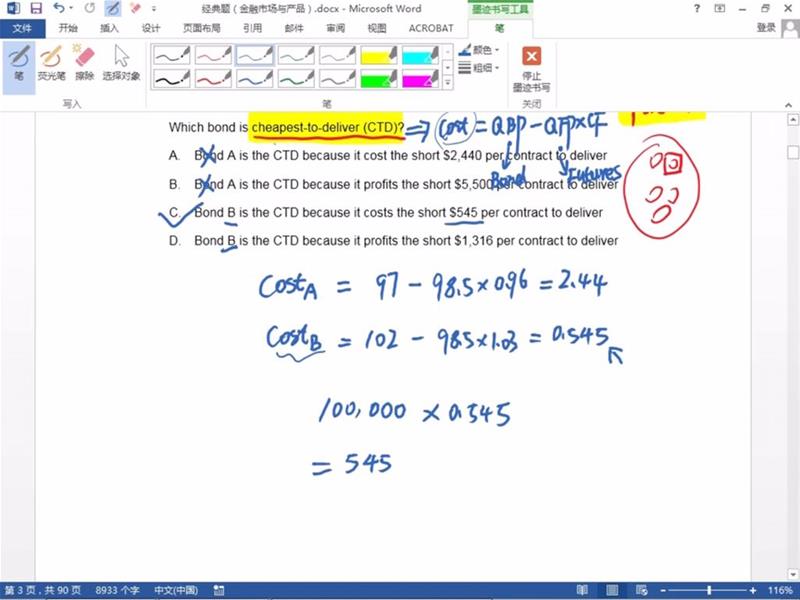 经典题（金融市场与产品）.docx - Microsoft Word
墨迹书写工具
文件 开始 插入 设计 页面布局 引用 邮件 审阅 视图 ACROBAT 笔 登录
笔 荧光笔 擦除 选择对象
颜色
粗细
停止
墨迹书写
写入 笔 关闭
Which bond is cheapest-to-deliver (CTD)? ⇒ Cost = QBP - QFP×CF
A. Bond A is the CTD because it cost the short $2,440 per contract to deliver
Bond Futures
B. Bond A is the CTD because it profits the short $5,500 per contract to deliver
C. Bond B is the CTD because it costs the short $545 per contract to deliver
D. Bond B is the CTD because it profits the short $1,316 per contract to deliver
Cost A = 97 - 98.5×0.96 = 2.44
Cost B = 102 - 98.5×1.03 = 0.545
100,000 × 0.545
= 545
第 3 页，共 90 页 8933 个字 中文(中国) 116%